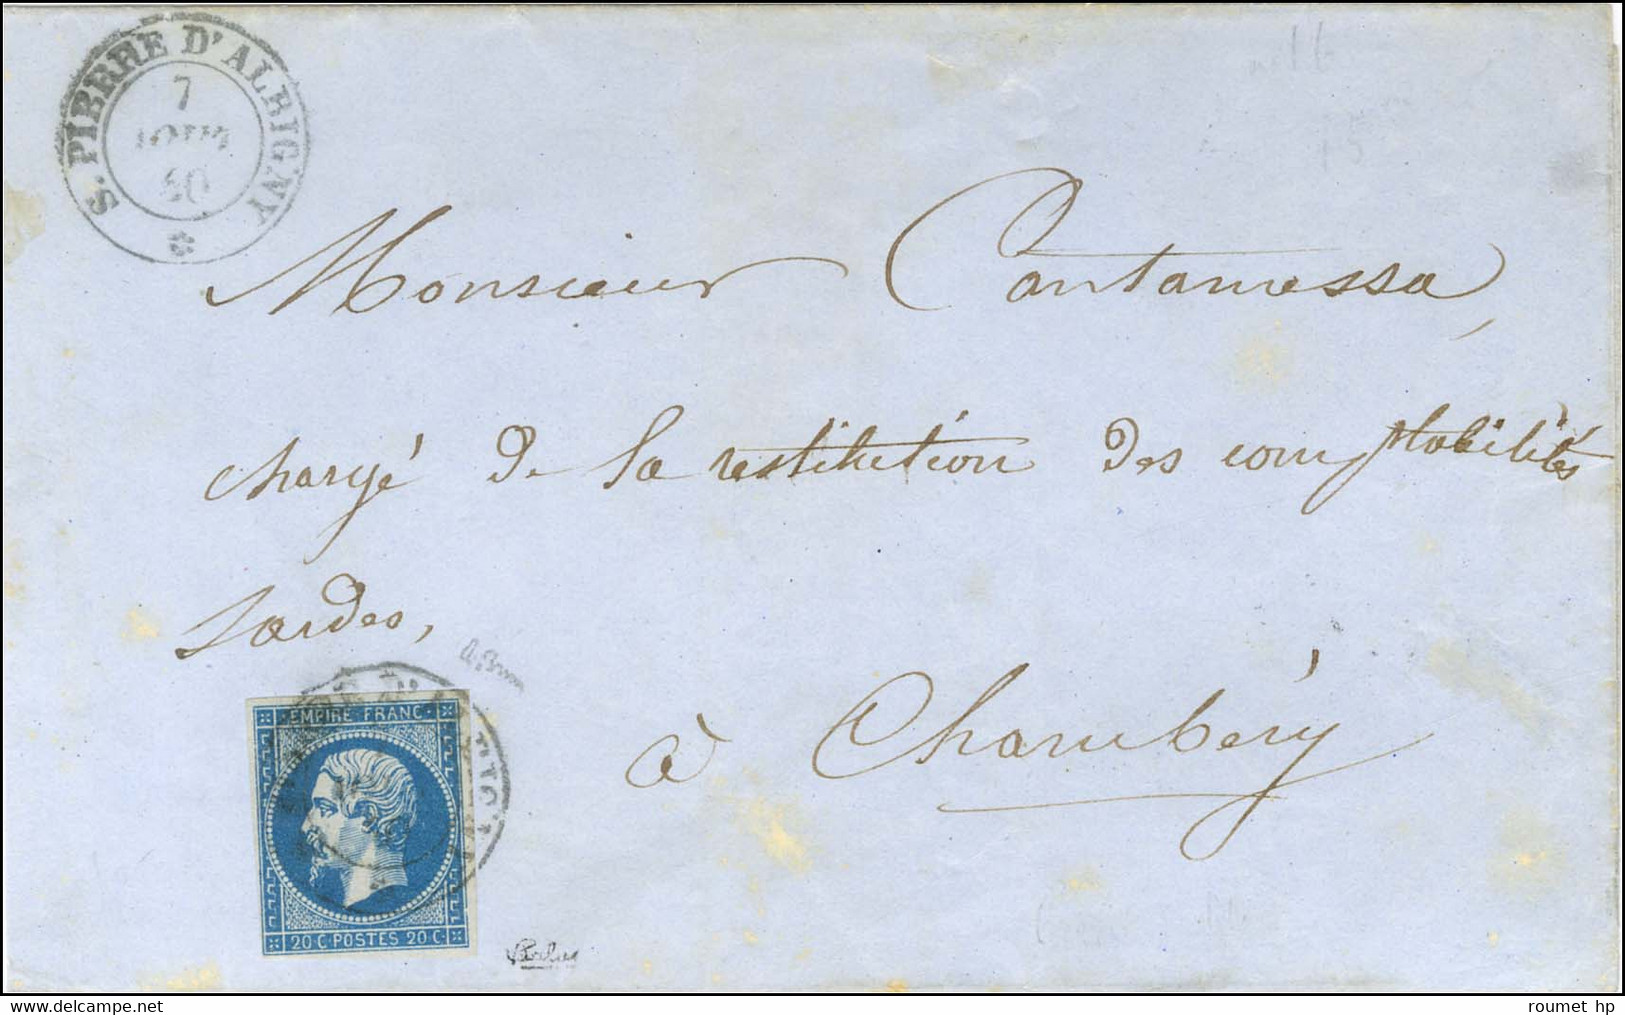 S. PIERRE D'ALBIGNY
7
60
Monsieur Cantamessa,
chargé de la restitution des comptabilités
sardes,
à Chambéry
EMPIRE FRANC
20 C POSTES 20 C
www.delcampe.net
roumet hp